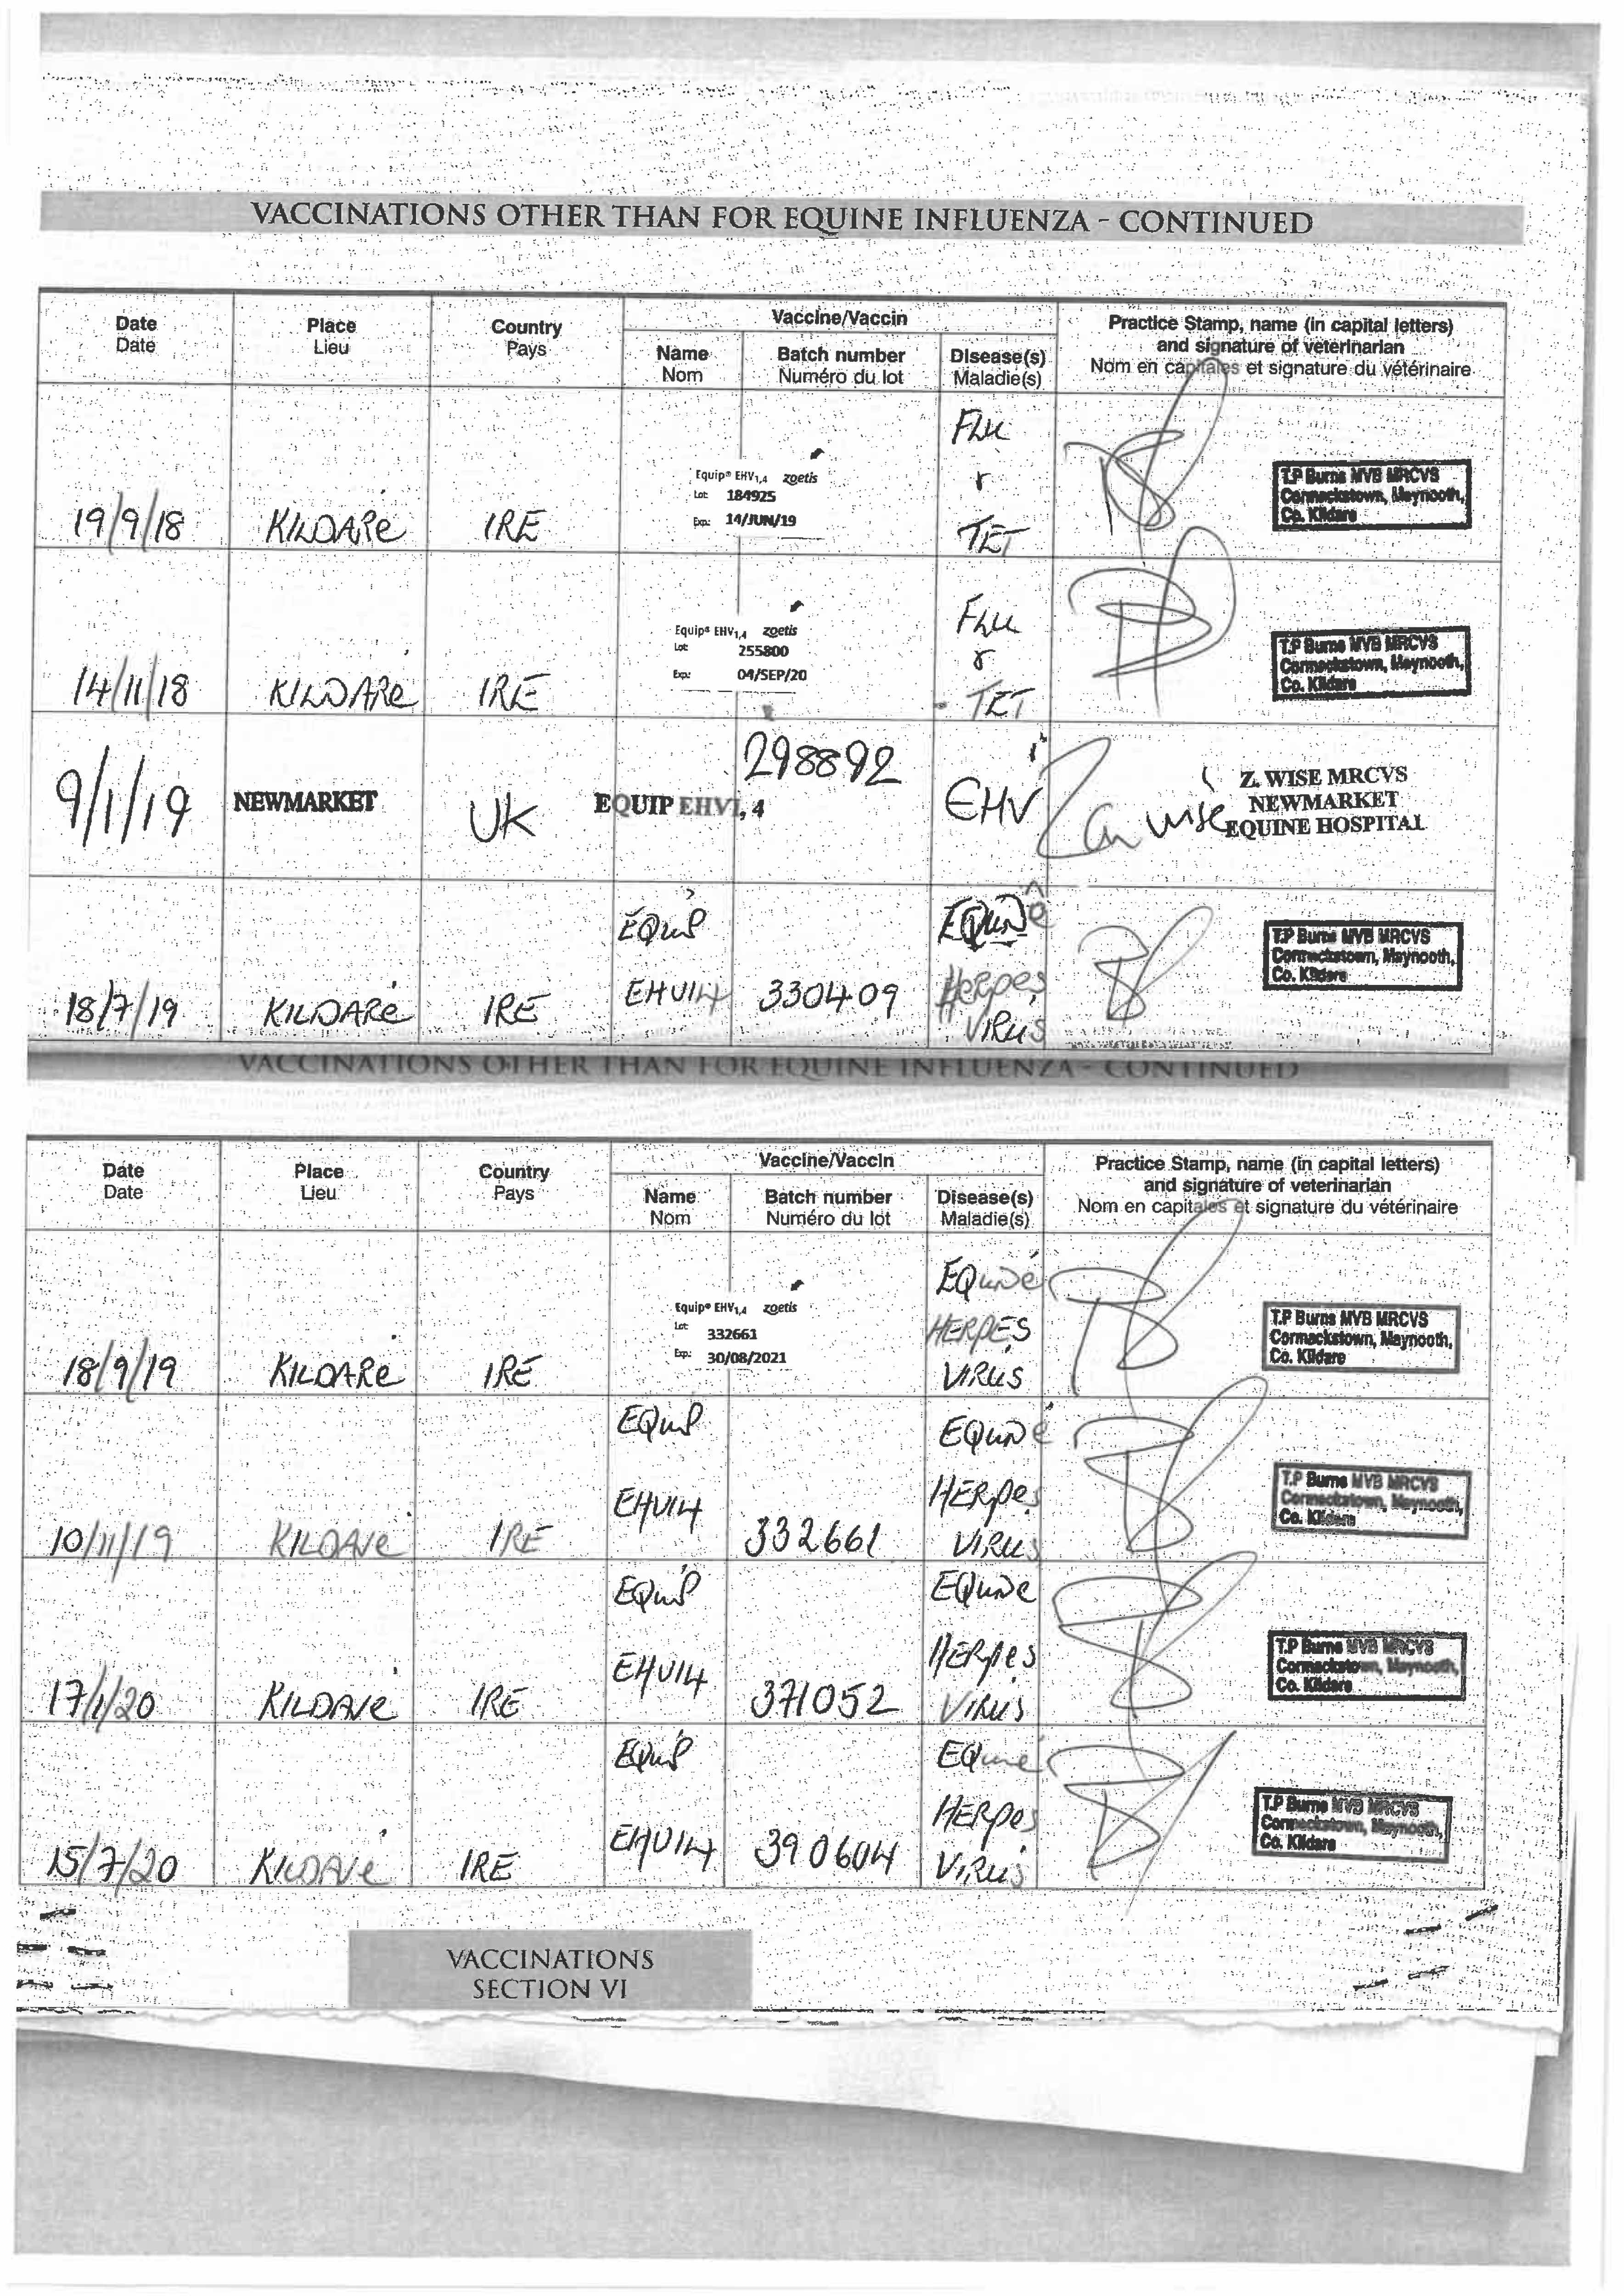 VACCINATIONS OTHER THAN FOR EQUINE INFLUENZA - CONTINUED
Date
Date
Place
Lieu
Country
Pays
Vaccine/Vaccin
Name
Nom
Batch number
Numéro du lot
Disease(s)
Maladie(s)
Practice Stamp, name (in capital letters)
and signature of veterinarian
Nom en capitales et signature du vétérinaire
19/9/18 KILDARE IRE
Equip® EHV1,4 zoetis
Lot: 184925
Exp: 14/JUN/19
FLU
r
TET
T.P Burns MVB MRCVS
Cormackstown, Maynooth,
Co. Kildare
14/11/18 KILDARE IRE
Equip® EHV1,4 zoetis
Lot: 255800
Exp: 04/SEP/20
FLU
r
TET
T.P Burns MVB MRCVS
Cormackstown, Maynooth,
Co. Kildare
9/1/19 NEWMARKET UK EQUIP EHV1,4 298892 EHV
Z. WISE MRCVS
NEWMARKET
EQUINE HOSPITAL
18/7/19 KILDARE IRE
EQUIP
EHV14
330409
EQUINE
HERPES
VIRUS
T.P Burns MVB MRCVS
Cormackstown, Maynooth,
Co. Kildare
VACCINATIONS OTHER THAN FOR EQUINE INFLUENZA - CONTINUED
Date
Date
Place
Lieu
Country
Pays
Vaccine/Vaccin
Name
Nom
Batch number
Numéro du lot
Disease(s)
Maladie(s)
Practice Stamp, name (in capital letters)
and signature of veterinarian
Nom en capitales et signature du vétérinaire
18/9/19 KILDARE IRE
Equip® EHV1,4 zoetis
Lot: 332661
Exp: 30/08/2021
EQUINE
HERPES
VIRUS
T.P Burns MVB MRCVS
Cormackstown, Maynooth,
Co. Kildare
10/11/19 KILDARE IRE
EQUIP
EHV14
332661
EQUINE
HERPES
VIRUS
T.P Burns MVB MRCVS
Cormackstown, Maynooth,
Co. Kildare
17/1/20 KILDARE IRE
EQUIP
EHV14
371052
EQUINE
HERPES
VIRUS
T.P Burns MVB MRCVS
Cormackstown, Maynooth,
Co. Kildare
15/7/20 KILDARE IRE
EQUIP
EHV14
390604
EQUINE
HERPES
VIRUS
T.P Burns MVB MRCVS
Cormackstown, Maynooth,
Co. Kildare
VACCINATIONS
SECTION VI